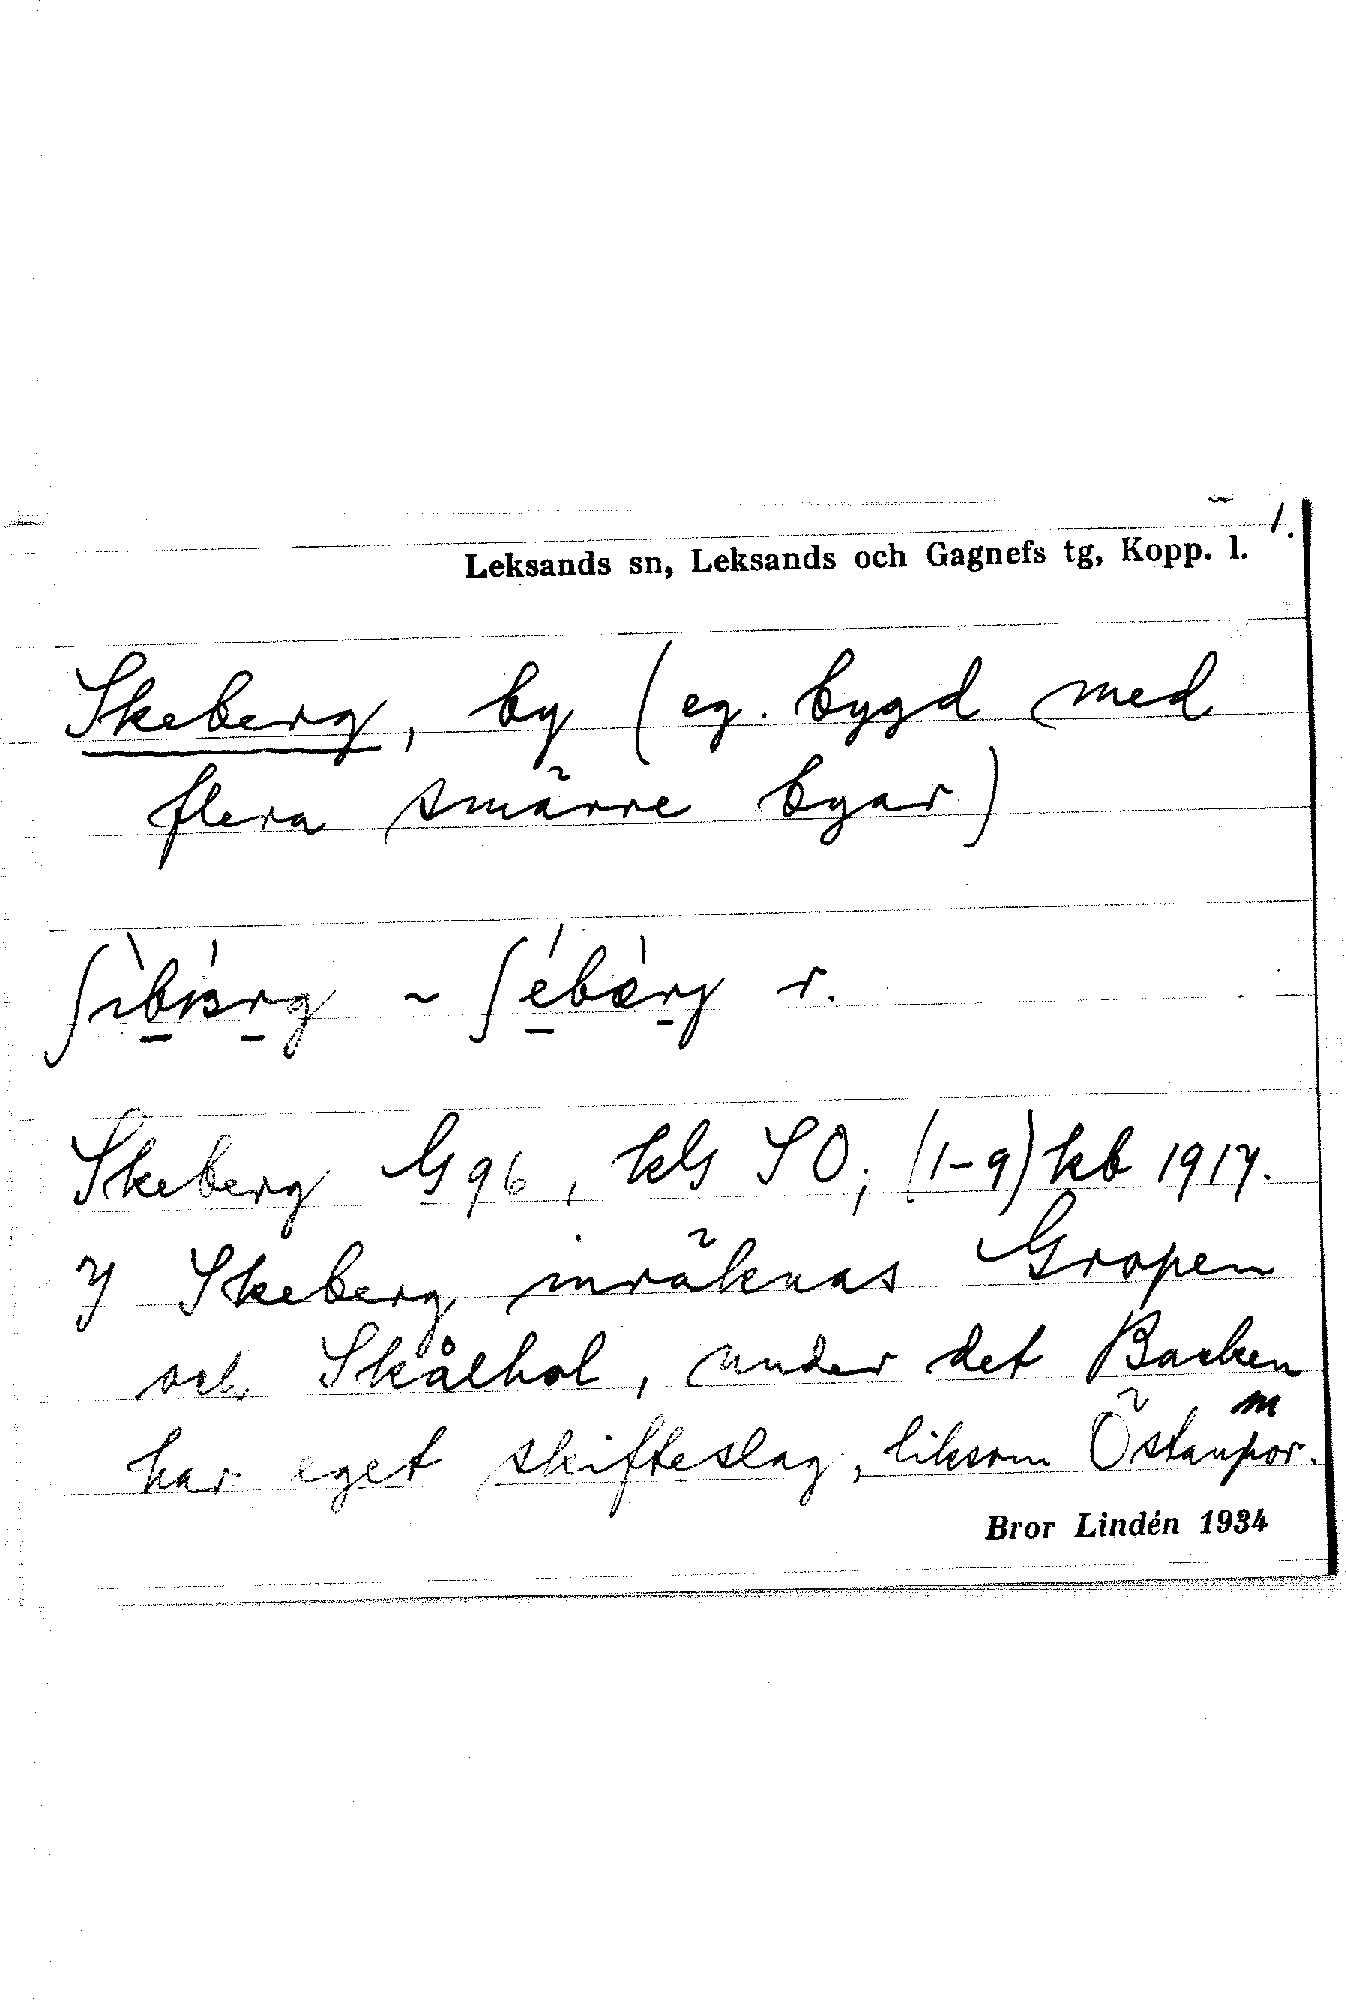 1.
Leksands sn, Leksands och Gagnefs tg, Kopp. l.
Skeberg, by (eg. bygd med
flera smärre byar)
~ r.
Skeberg G 96, kG SO; (1-9) kb 1917.
I Skeberg inräknas Gropen
och Skålhol, under det Backen
har eget skifteslag, liksom
Bror Lindén 1934